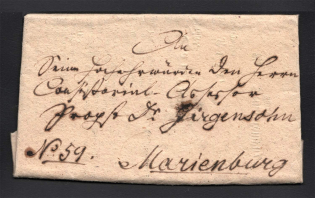 An
Seine Hochehrwürden den Herrn
Consistorial-Assessor
Propst Dr Girgensohn
No. 59.
Marienburg